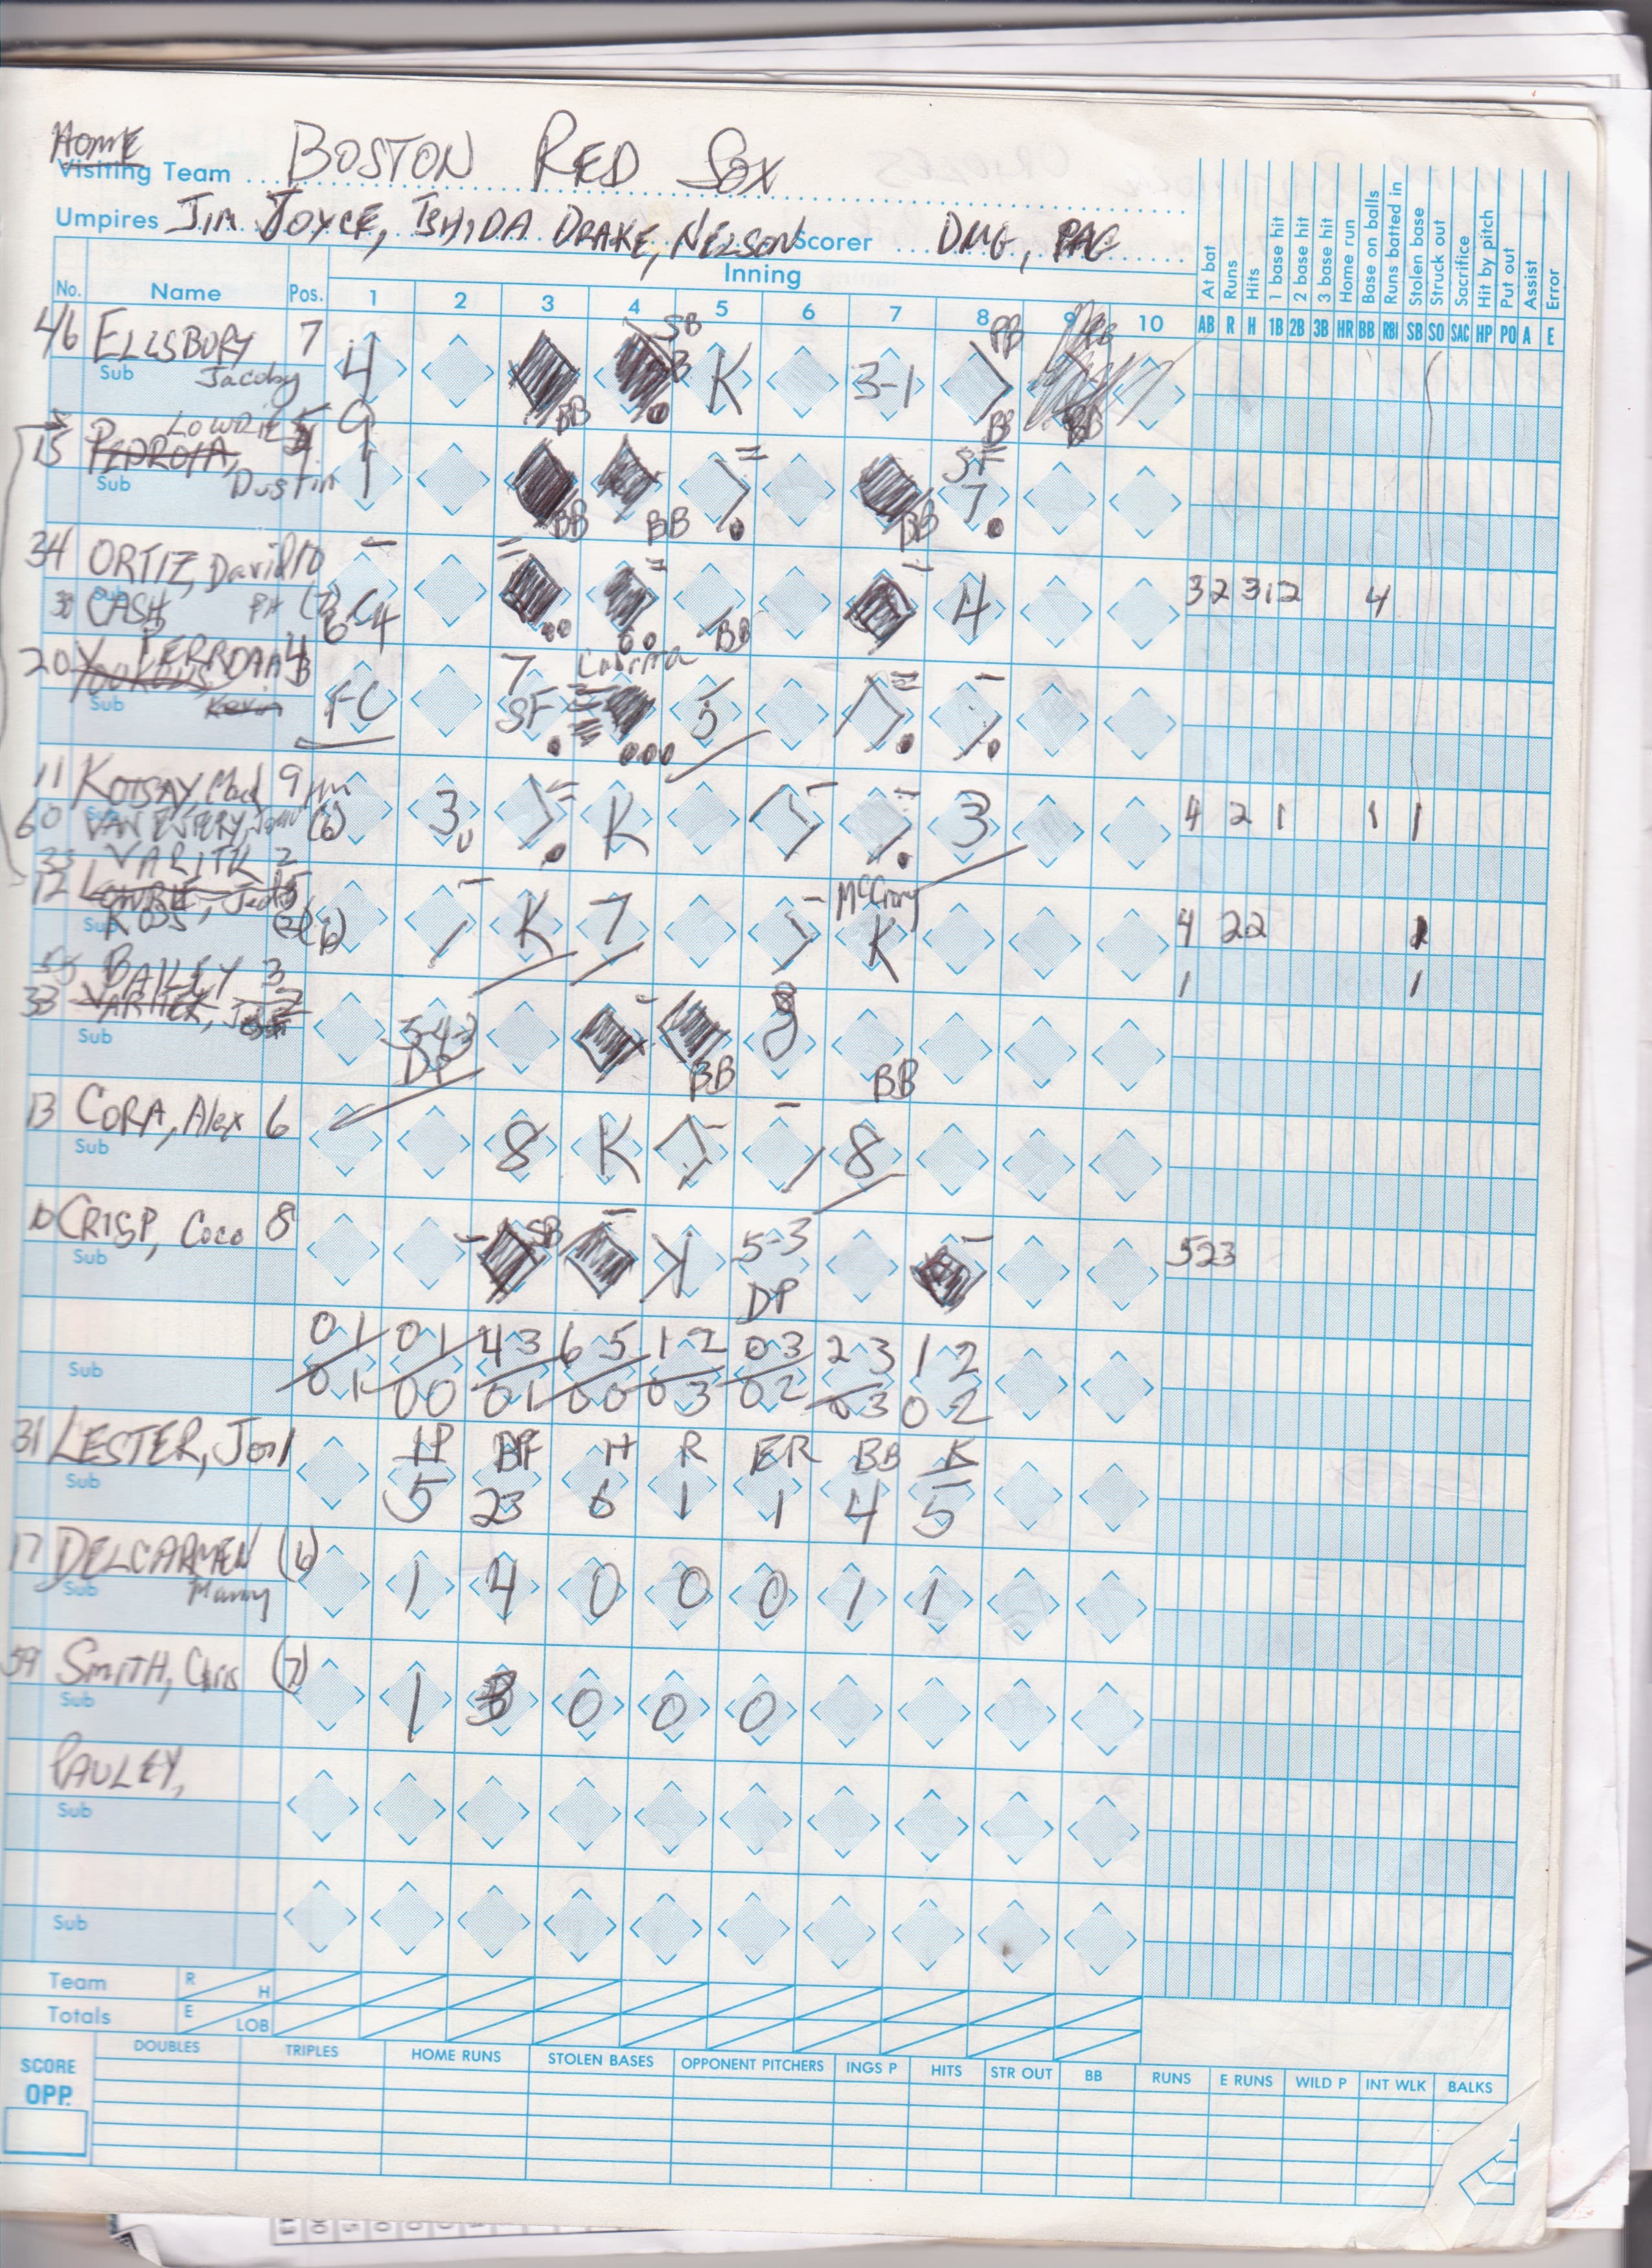 HOME
Visiting Team BOSTON RED SOX
Umpires JIM JOYCE, ISHIDA DRAKE, NELSON Scorer DMG, PAG
Inning
No. Name Pos. 1 2 3 4 5 6 7 8 9 10
At bat Runs Hits 1 base hit 2 base hit 3 base hit Home run Base on balls Runs batted in Stolen base Struck out Sacrifice Hit by pitch Put out Assist Error
AB R H 1B 2B 3B HR BB RBI SB SO SAC HP PO A E
46 ELLSBURY 7 4 BB SB K 3-1 BB BB
Sub Jacoby
LOWRIE 5 9
15 PEDROIA, BB BB BB SF 7
Sub Dustin
34 ORTIZ, David 10 BB 4 3 2 3 1 2 4
Sub CASH PH (7)
20 YOUKILIS FC 7 SF 5
Sub Kevin
11 KOTSAY, Mark 9 3 K 3 4 2 1 1 1
60 VAN EVERY, (6)
33 VARITK 2
12 LOWRIE, Jed K 7 McCrory K 4 2 2
Sub ROSS (6) 1 1
BAILEY 3
33 VARITEK, 5-4-3 DP BB 8 BB
Sub
13 CORA, Alex 6 8 K 8
Sub
10 CRISP, Coco 8 SB K 5-3 DP 5 2 3
Sub
0 1 0 1 4 3 6 5 1 2 0 3 2 3 1 2
Sub 0 1 0 0 0 1 0 0 0 3 0 2 0 3 0 2
31 LESTER, Jon 1 IP BF H R ER BB K
Sub 5 23 6 1 1 4 5
17 DELCARMEN (6) 1 4 0 0 0 1 1
Sub Manny
59 SMITH, Chris (7) 1 3 0 0 0
Sub
PAULEY,
Sub
Sub
Team R H
Totals E LOB
SCORE OPP. DOUBLES TRIPLES HOME RUNS STOLEN BASES OPPONENT PITCHERS INGS P HITS STR OUT BB RUNS E RUNS WILD P INT WLK BALKS